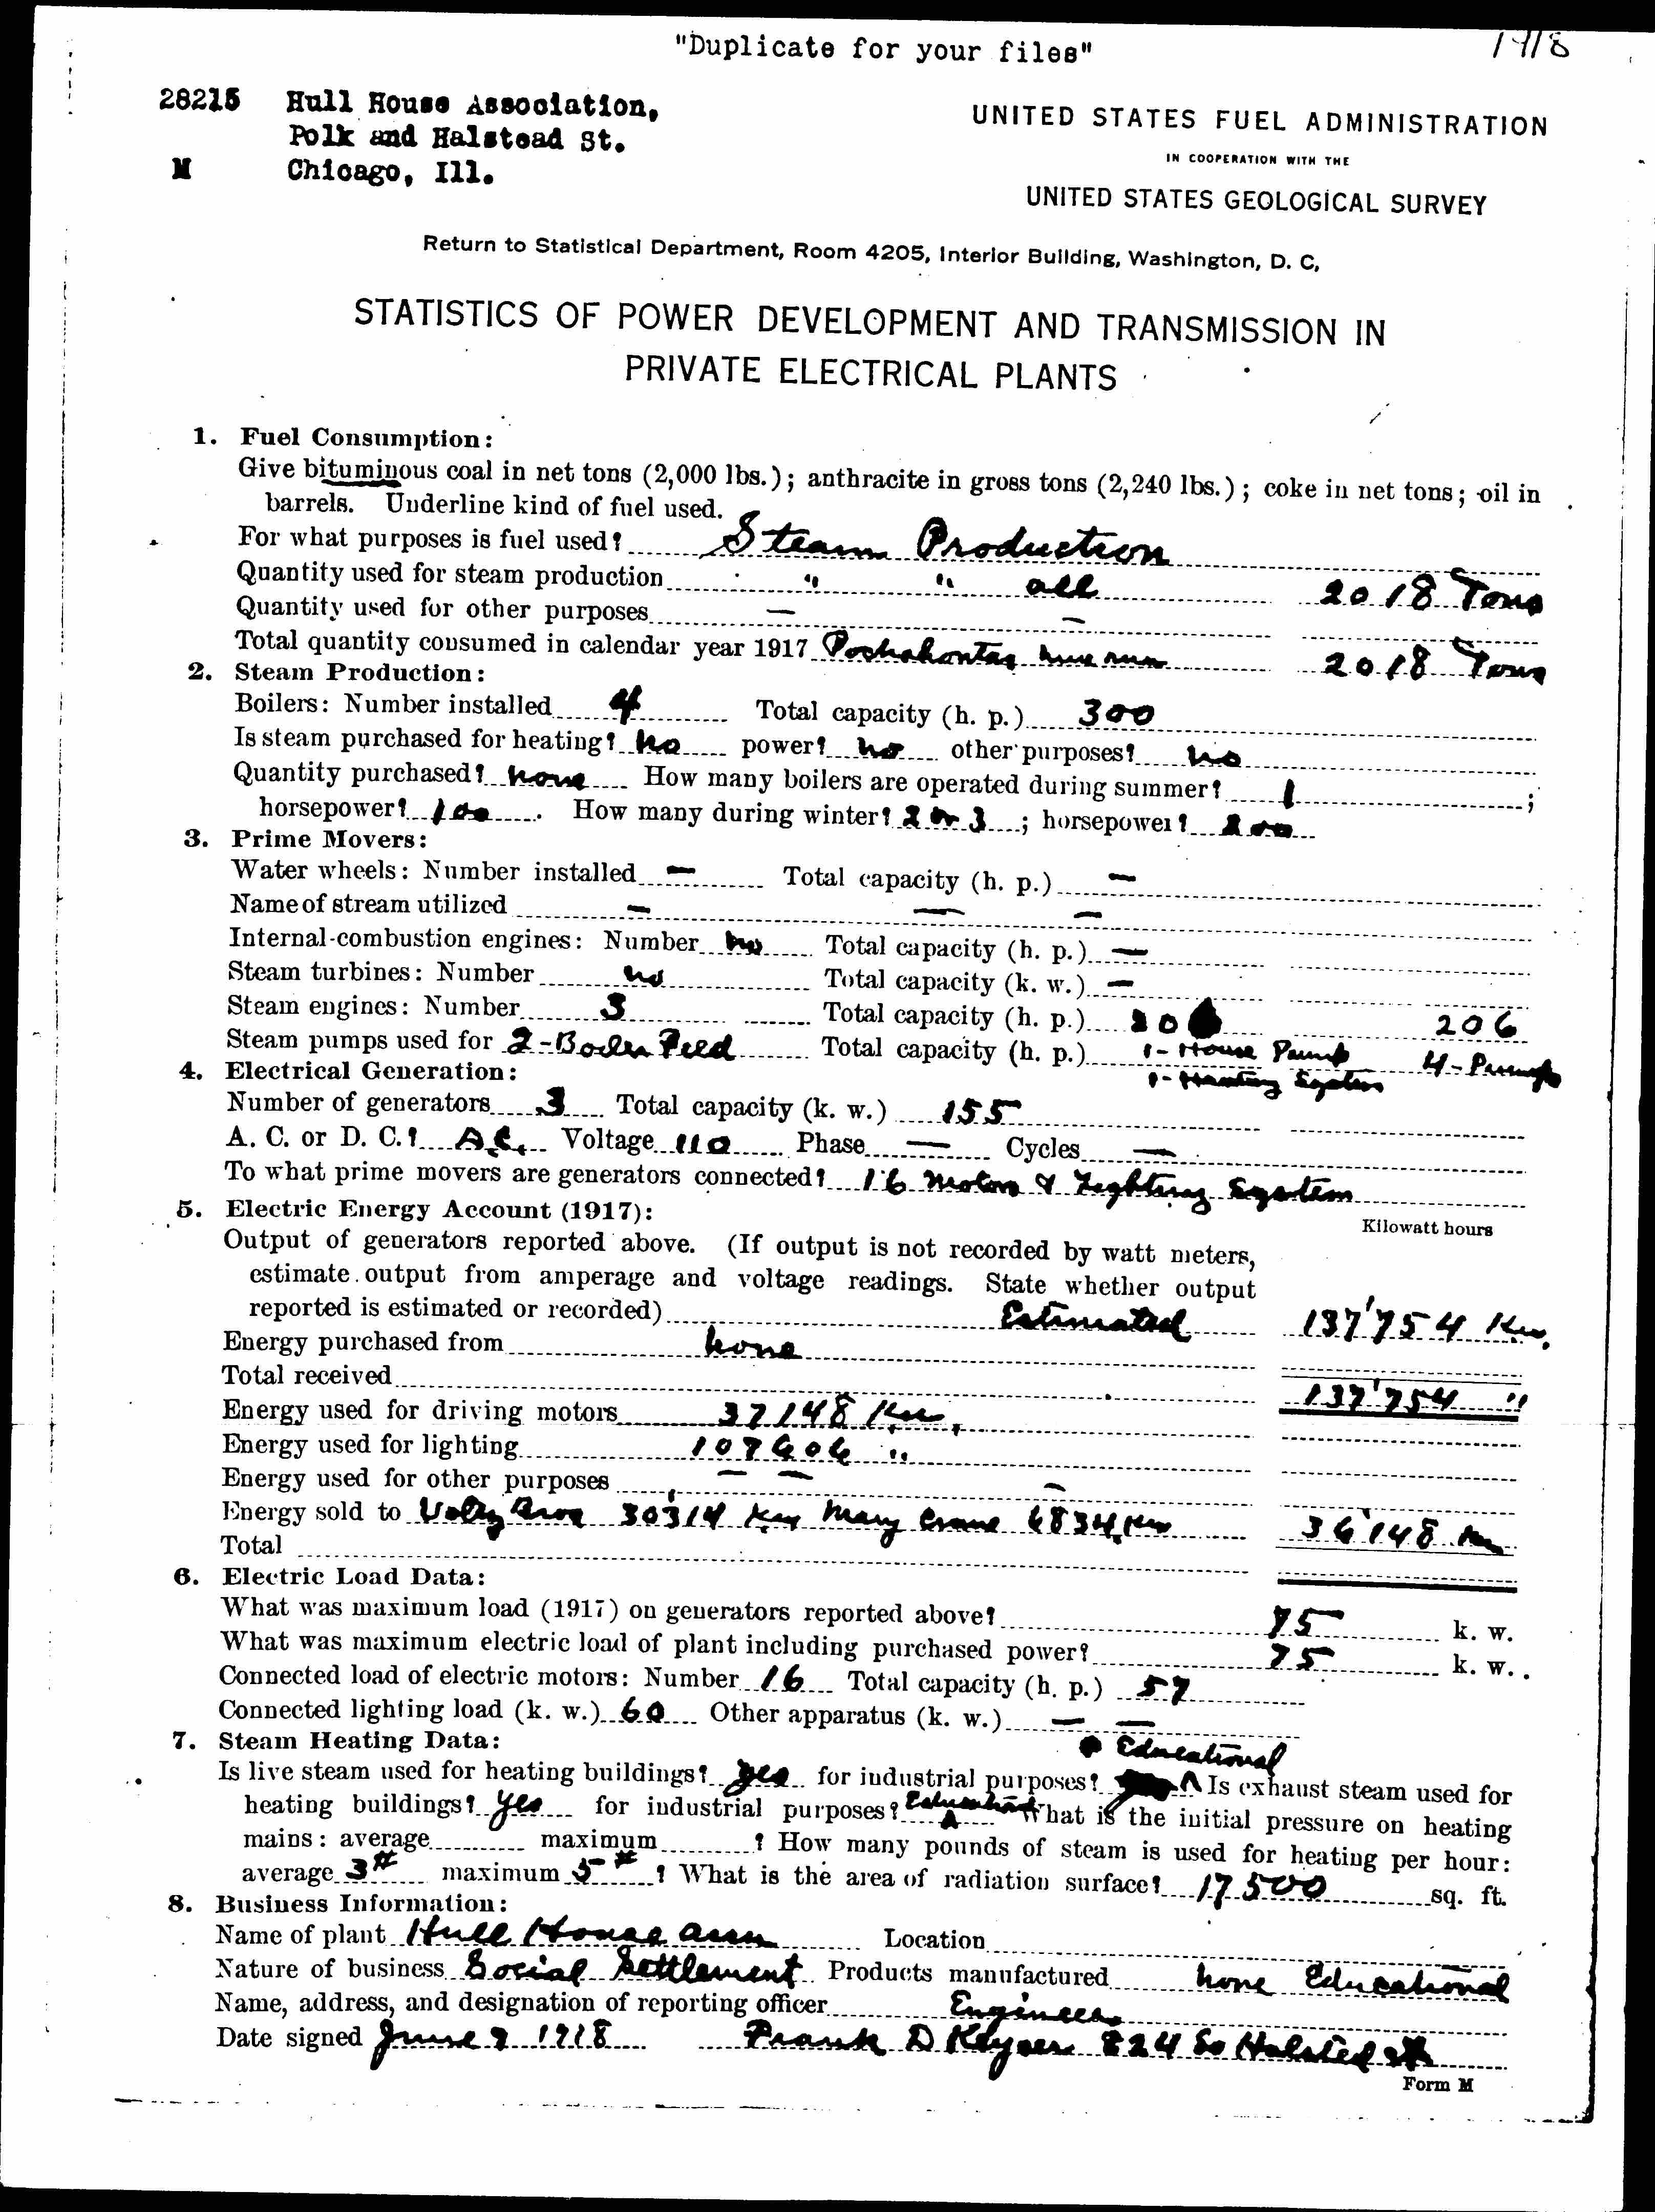 "Duplicate for your files"
1918
28215 Hull House Association,
Polk and Halstead St.
M Chicago, Ill.
UNITED STATES FUEL ADMINISTRATION
IN COOPERATION WITH THE
UNITED STATES GEOLOGICAL SURVEY
Return to Statistical Department, Room 4205, Interior Building, Washington, D. C,
STATISTICS OF POWER DEVELOPMENT AND TRANSMISSION IN
PRIVATE ELECTRICAL PLANTS
1. Fuel Consumption:
Give bituminous coal in net tons (2,000 lbs.); anthracite in gross tons (2,240 lbs.); coke in net tons; oil in
barrels. Underline kind of fuel used.
For what purposes is fuel used? Steam Production
Quantity used for steam production " " all 2018 Tons
Quantity used for other purposes — —
Total quantity consumed in calendar year 1917 Pochahontas mine run 2018 Tons
2. Steam Production:
Boilers: Number installed 4 Total capacity (h. p.) 300
Is steam purchased for heating? no power? no other purposes? no
Quantity purchased? none How many boilers are operated during summer? 1 ;
horsepower? 100. How many during winter? 2 or 3; horsepower? 200
3. Prime Movers:
Water wheels: Number installed — Total capacity (h. p.) —
Name of stream utilized — — —
Internal-combustion engines: Number no Total capacity (h. p.) —
Steam turbines: Number no Total capacity (k. w.) —
Steam engines: Number 3 Total capacity (h. p.) 206 206
Steam pumps used for 2-Boiler Feed Total capacity (h. p.) 1-House Pump 4-Pumps
1-Heating System
4. Electrical Generation:
Number of generators 3 Total capacity (k. w.) 155
A. C. or D. C.? Voltage 110 Phase — Cycles —
To what prime movers are generators connected? 16 Motors & Lighting System
5. Electric Energy Account (1917):
Kilowatt hours
Output of generators reported above. (If output is not recorded by watt meters,
estimate output from amperage and voltage readings. State whether output
reported is estimated or recorded) Estimated 137'754 Kw.
Energy purchased from none
Total received 137'754 "
Energy used for driving motors 37148 Kw.
Energy used for lighting 107606 "
Energy used for other purposes — — —
Energy sold to 30314 Kw Mary Crane 6834 Kw 36'148 Kw
Total
6. Electric Load Data:
What was maximum load (1917) on generators reported above? 75 k. w.
What was maximum electric load of plant including purchased power? 75 k. w.
Connected load of electric motors: Number 16 Total capacity (h. p.) 57
Connected lighting load (k. w.) 60 Other apparatus (k. w.) — —
7. Steam Heating Data:
Educational
Is live steam used for heating buildings? yes for industrial purposes? Is exhaust steam used for
heating buildings? yes for industrial purposes? Educational What is the initial pressure on heating
mains: average maximum ? How many pounds of steam is used for heating per hour:
average 3# maximum 5# ? What is the area of radiation surface? 17500 sq. ft.
8. Business Information:
Name of plant Hull House assn Location
Nature of business Social Settlement Products manufactured none Educational
Name, address, and designation of reporting officer Engineer
Date signed June 7 1918 Frank D Keyser 824 So Halsted St
Form M